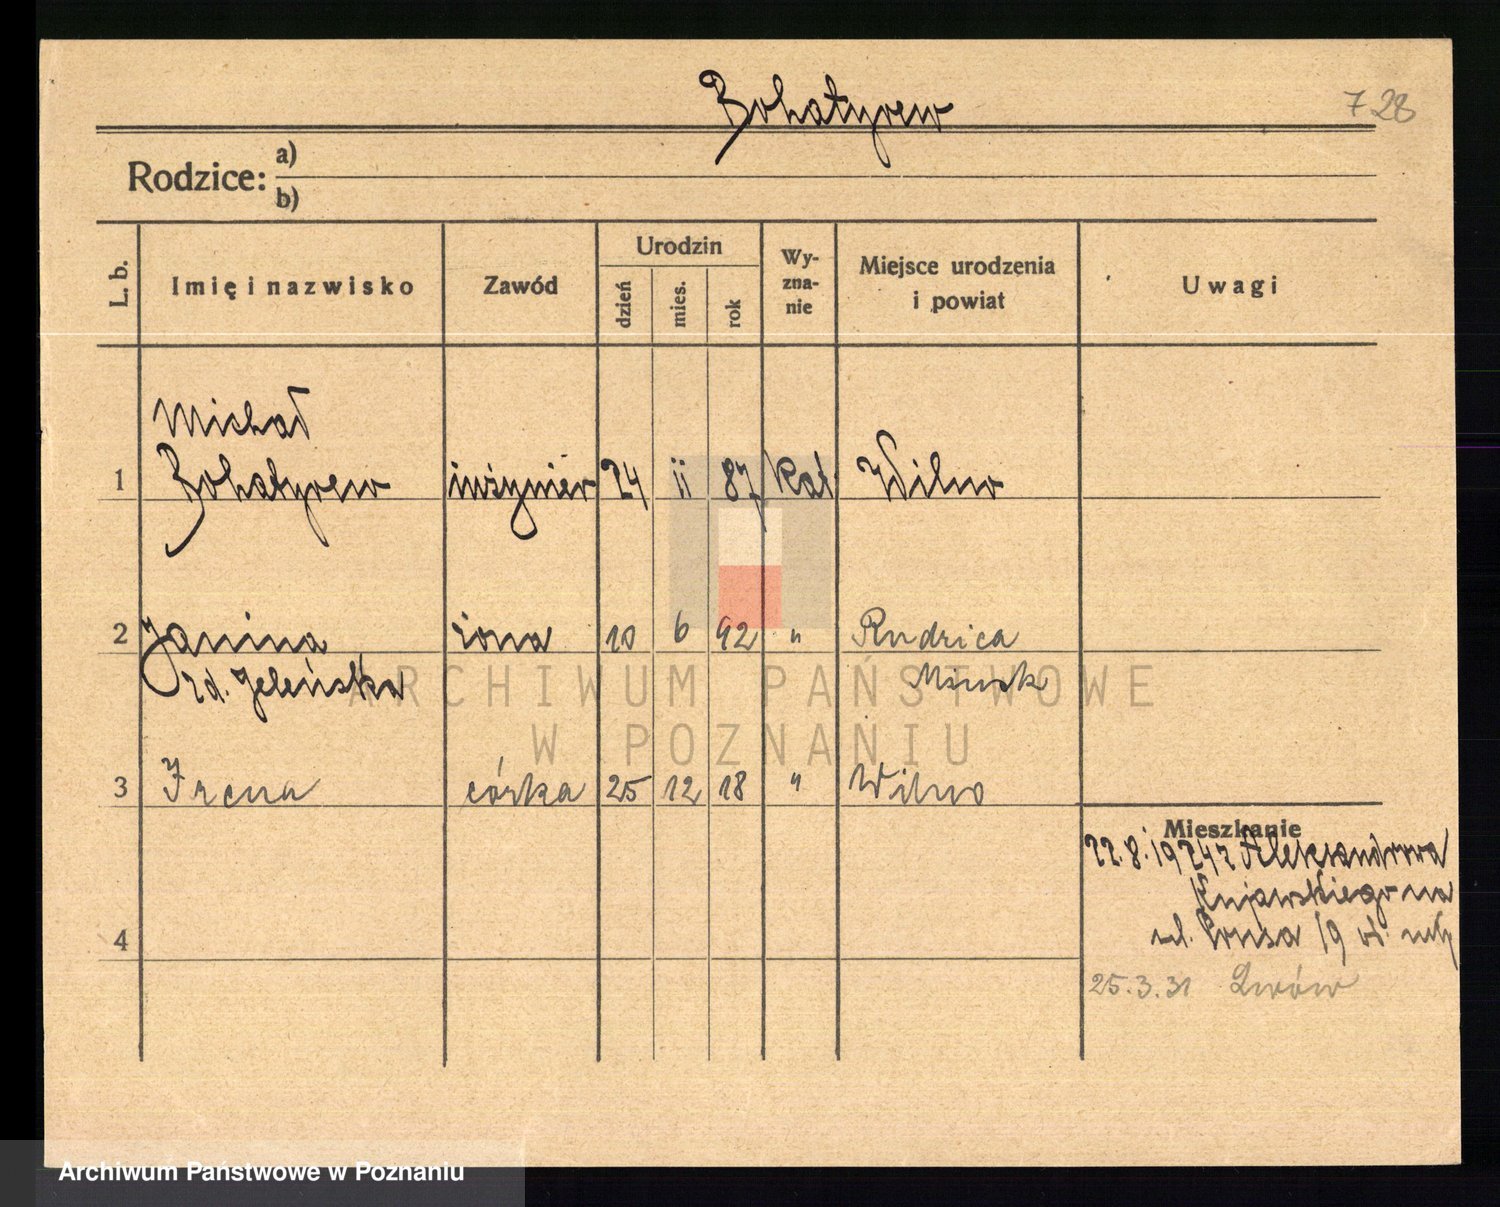 Bohatyrew
728
Rodzice: a)
b)
L. b. Imię i nazwisko Zawód Urodzin dzień mies. rok Wy-zna-nie Miejsce urodzenia i powiat Uwagi
Michał
1 Bohatyrew inżynier 24 ii 87 kat Wilno
2 Janina żona 10 6 92 " Rudzica
zd. Jeleńska Mińsk
ARCHIWUM PAŃSTWOWE
W POZNANIU
3 Irena córka 25 12 18 " Wilno
Mieszkanie
22.8.1924 z Aleksandrowa
Kujawskiego na
ul. Prusa 19
4
25.3.31 Lwów
Archiwum Państwowe w Poznaniu